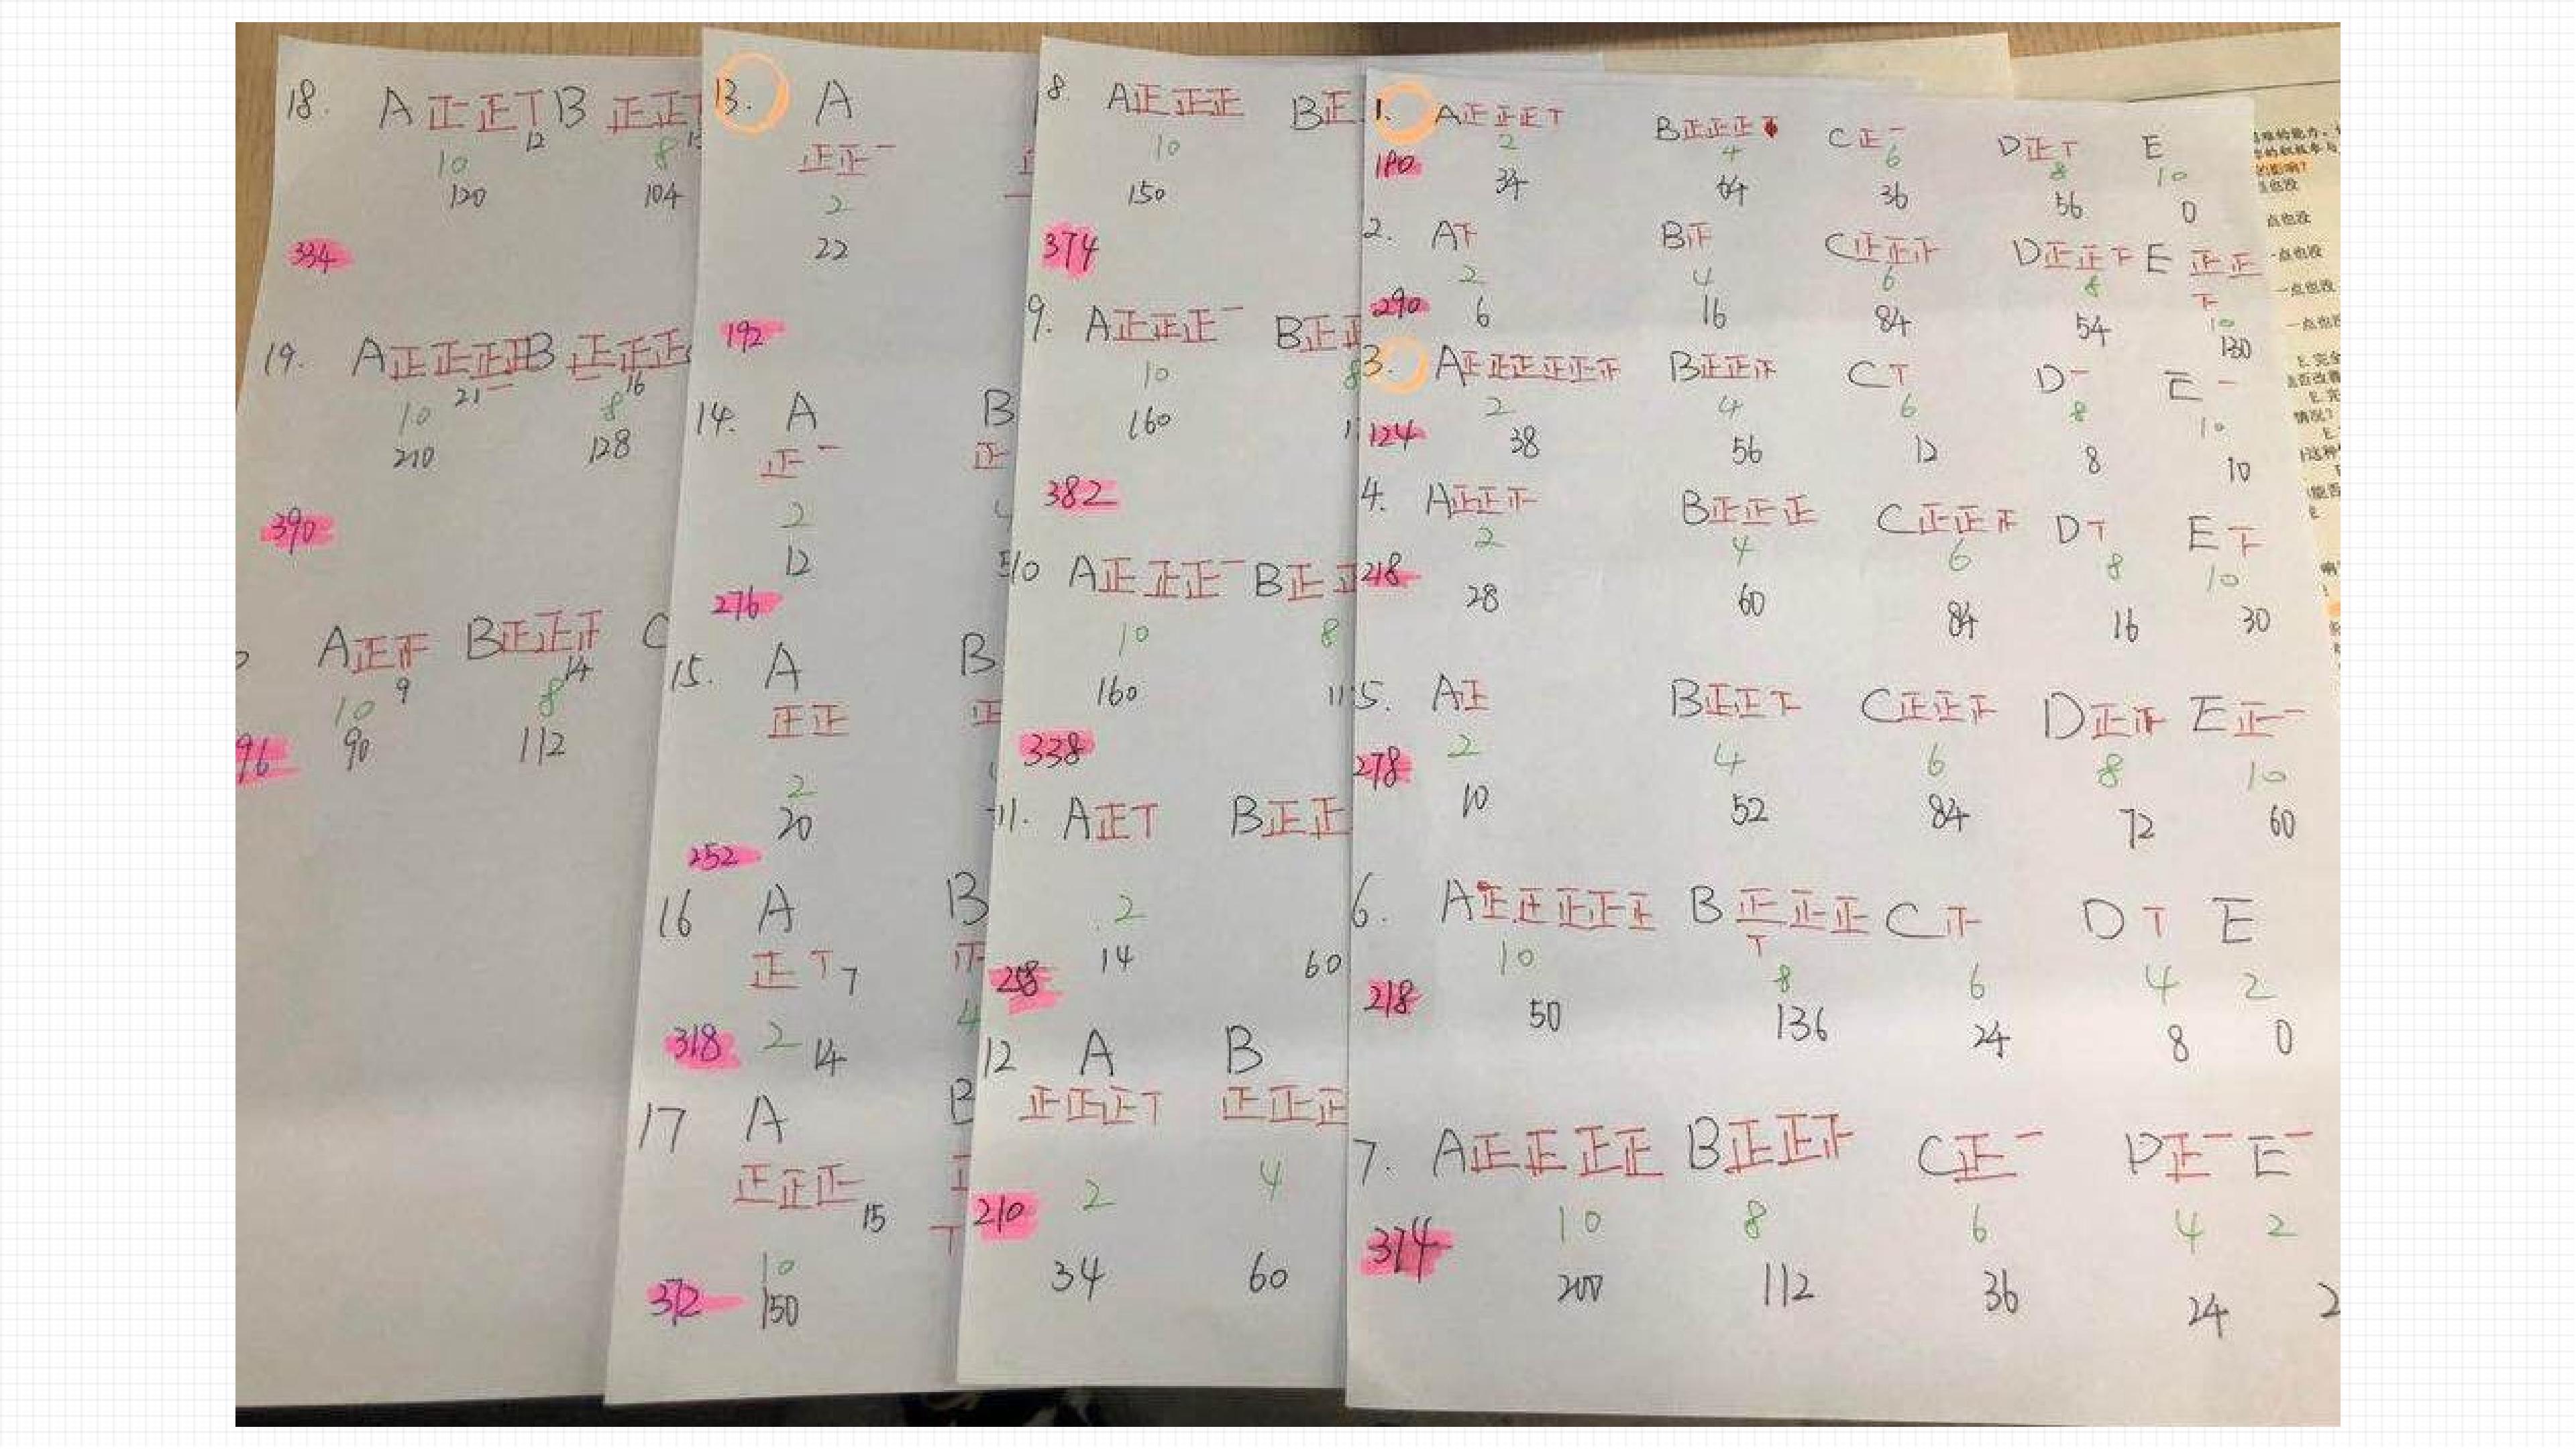 18. A 正正T B 正正
12
10 8
120 104
334
19. A 正正正正一 B 正正正一
21 16
10 8
210 128
390
A 正正 B 正正正 C
9 14
10 8
90 112
96
13. A
正正一
2
22
192
14. A B
正一 正
2
12
276
15. A B
正正 正
2
20
252
16 A B
正T 7
318 2 14 4
17 A B
正正正 15
10
372 150
8. A正正正 B正
10
150
374
9. A正正正一 B正
10 8
160
382
10 A正正正一 B正正
10 8
160 11
338
11. A正T B正正
2
14 60
268
12 A B
正正正T 正正正
2 4
210
34 60
1. A正正正T B正正正一 C正一 D正T E
2 4 6 8 10
180 34 64 36 56 0
2. A下 B正 C正正正 D正正下 E正正下
2 4 6 8 10
290 6 16 84 54 130
3. A正正正正正正 B正正正 CT D一 E一
2 4 6 8 10
124 38 56 12 8 10
4. A正正正 B正正正 C正正正 DT E下
2 4 6 8 10
218 28 60 84 16 30
5. A正 B正正下 C正正正 D正正 E正一
2 4 6 8 10
278 10 52 84 72 60
6. A正正正正正 B正正正T C正 DT E
10 8 6 4 2
218 50 136 24 8 0
7. A正正正正 B正正正 C正一 D正一 E一
10 8 6 4 2
374 200 112 36 24 2
点也没
点也没
一点也没
一点也没